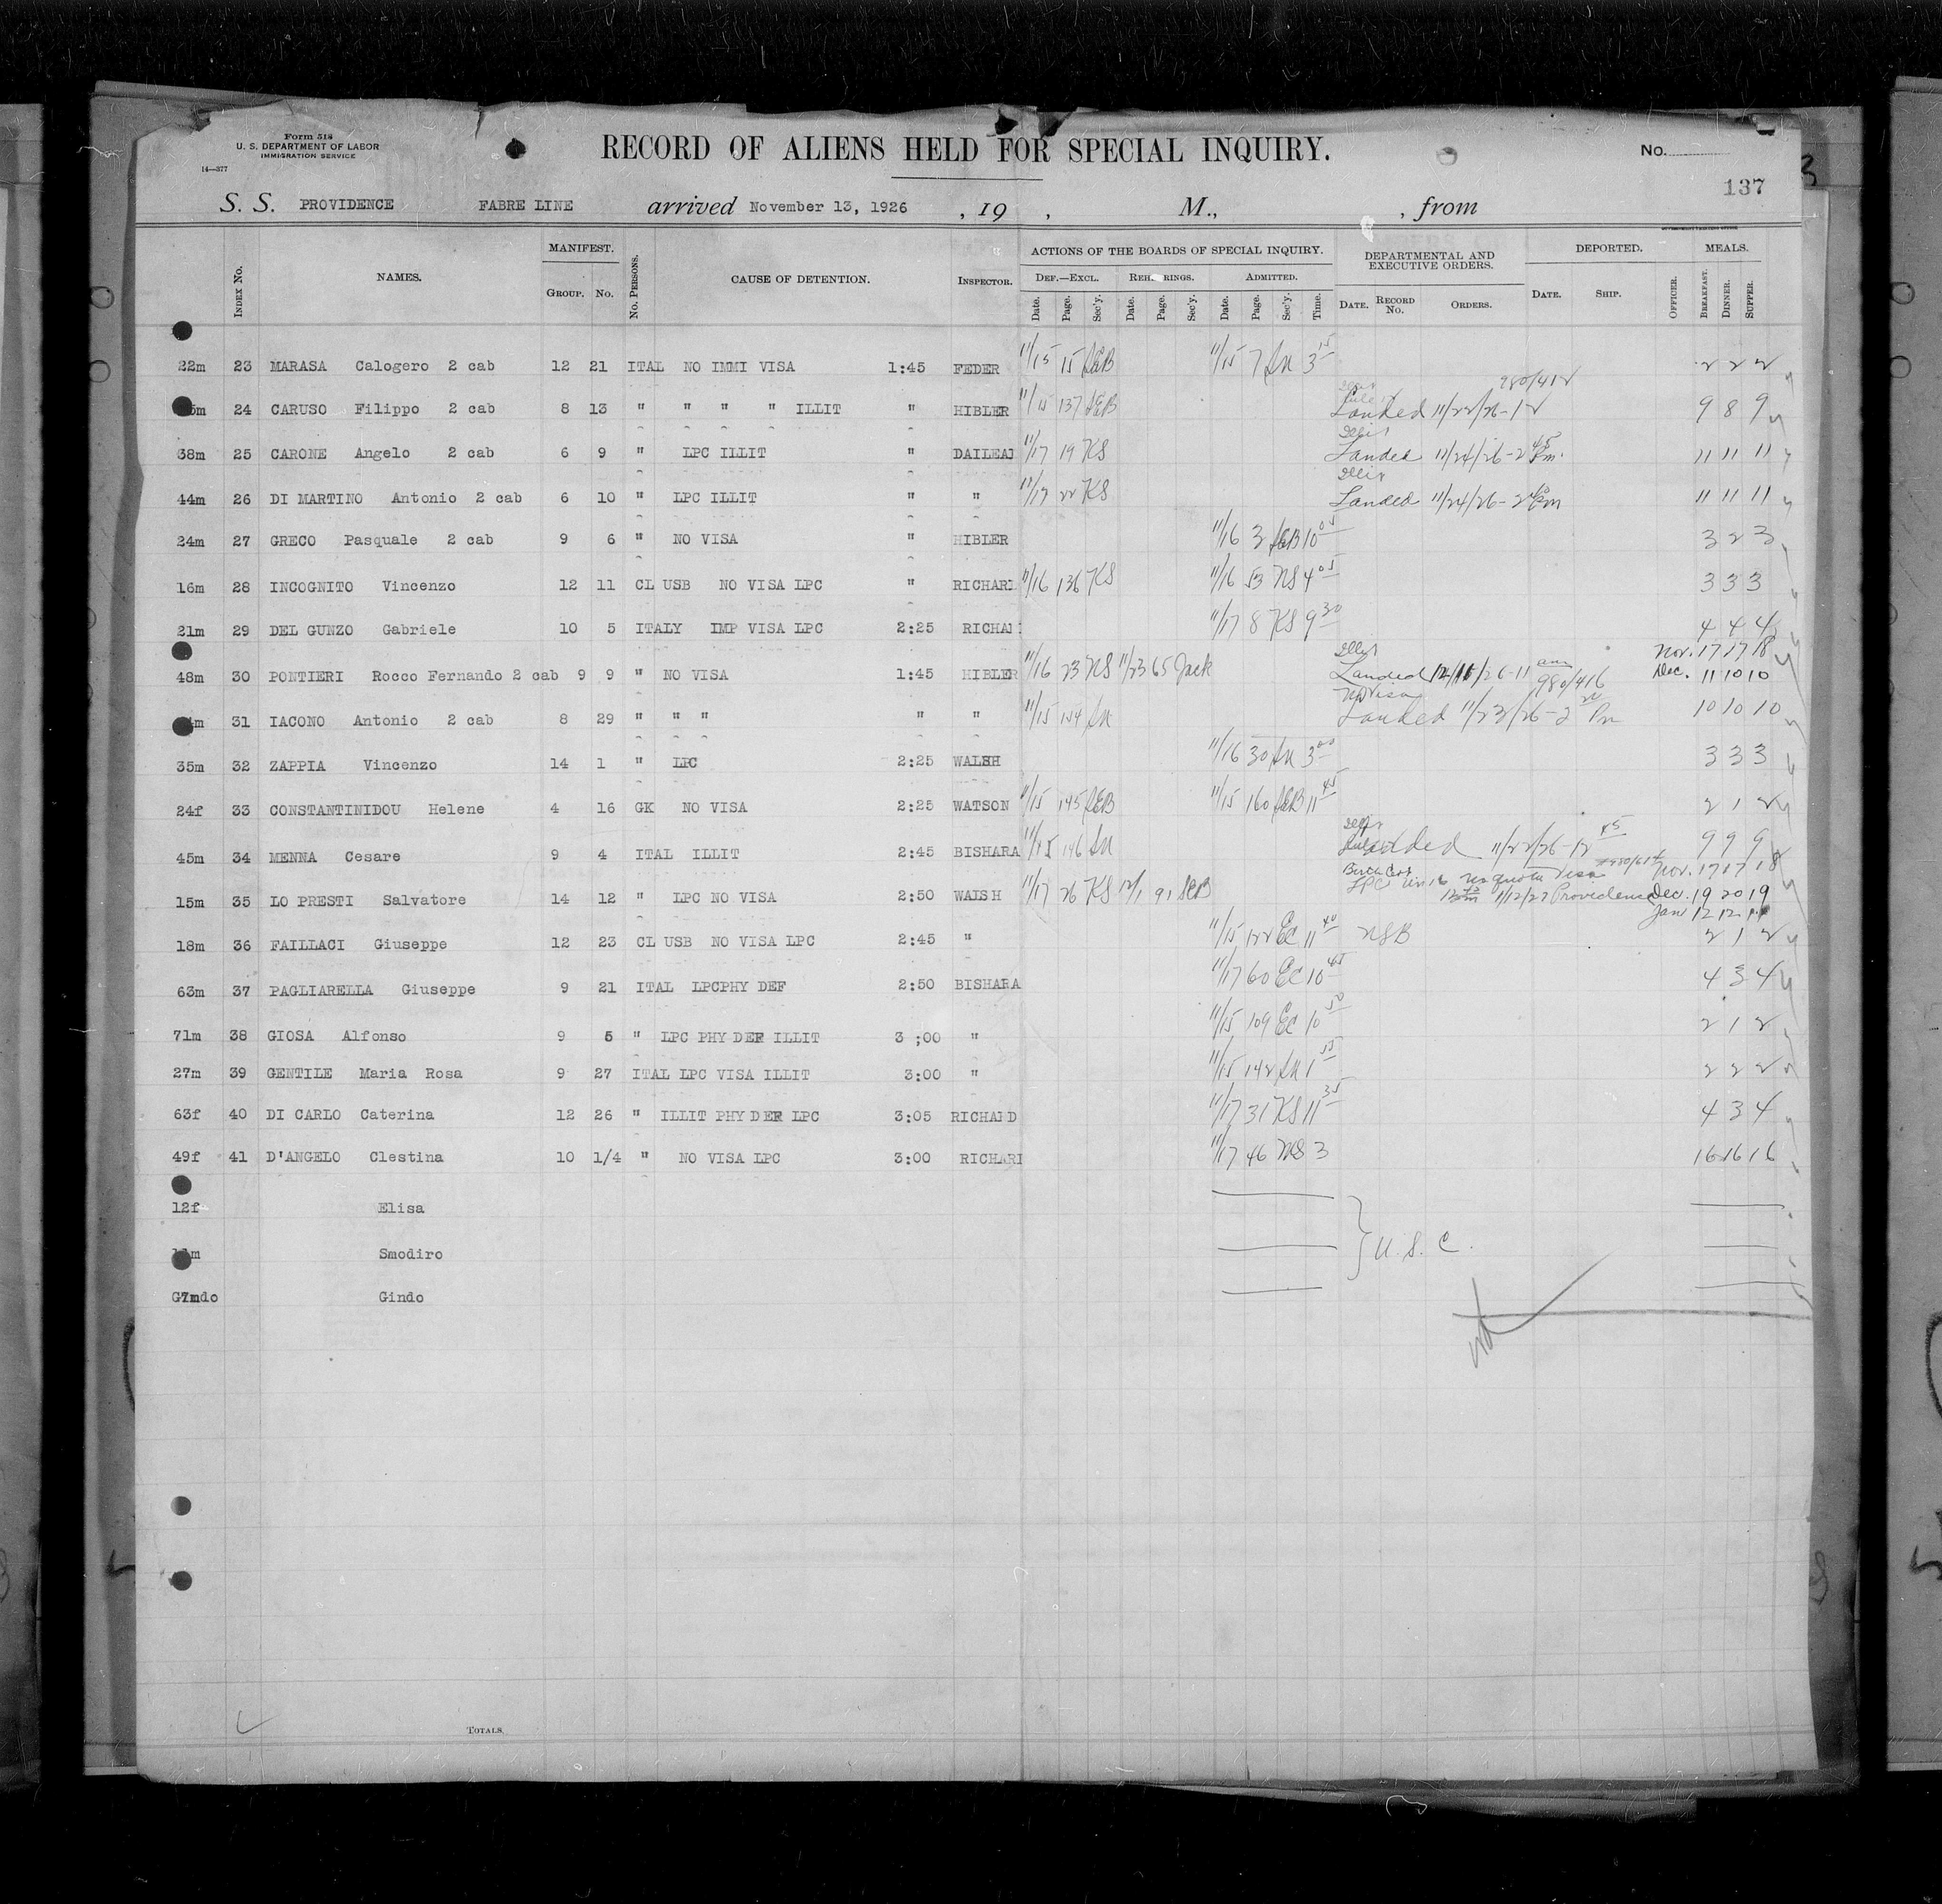 Form 518
U. S. DEPARTMENT OF LABOR
IMMIGRATION SERVICE
14—377
RECORD OF ALIENS HELD FOR SPECIAL INQUIRY.
No.
137
S. S. PROVIDENCE FABRE LINE arrived November 13, 1926 , 19 , M., , from
INDEX No. NAMES. MANIFEST. GROUP. No. No. PERSONS. CAUSE OF DETENTION. INSPECTOR. ACTIONS OF THE BOARDS OF SPECIAL INQUIRY. DEPARTMENTAL AND EXECUTIVE ORDERS. DEPORTED. MEALS.
DEF.—EXCL. ADMITTED.
Date. Page. Sec'y. Date. Page. Sec'y. Date. Page. Sec'y. Time. DATE. RECORD No. ORDERS. DATE. SHIP. OFFICER. BREAKFAST. DINNER. SUPPER.
22m 23 MARASA Calogero 2 cab 12 21 ITAL NO IMMI VISA 1:45 FEDER 11/15 15 SEB 11/15 7 3 15 2 2 2
24 CARUSO Filippo 2 cab 8 13 " " " " ILLIT " HIBLER 11/15 137 SEB Landed 11/22/26-12 9 8 9
38m 25 CARONE Angelo 2 cab 6 9 " LPC ILLIT " 11/17 19 KS Landed 11/24/26-2 45 Pm. 11 11 11
44m 26 DI MARTINO Antonio 2 cab 6 10 " LPC ILLIT " " 11/17 22 KS Landed 11/24/26-2 Pm 11 11 11
24m 27 GRECO Pasquale 2 cab 9 6 " NO VISA " HIBLER 11/16 3 SEB 10 05 3 2 3
16m 28 INCOGNITO Vincenzo 12 11 CL USB NO VISA LPC " RICHARD 11/16 136 KS 11/16 53 NS 4 05 3 3 3
21m 29 DEL GUNZO Gabriele 10 5 ITALY IMP VISA LPC 2:25 11/17 8 KS 9 30 4 4 4
48m 30 PONTIERI Rocco Fernando 2 cab 9 9 " NO VISA 1:45 HIBLER 11/16 23 NS 11/23 65 Jack Landed 980/416 Nov. 17 17 18
Dec. 11 10 10
31 IACONO Antonio 2 cab 8 29 " " " " " 11/15 154 No Visa Landed 11/23/26-2 Pm 10 10 10
35m 32 ZAPPIA Vincenzo 14 1 " LPC 2:25 WALSH 11/16 30 3 00 3 3 3
24f 33 CONSTANTINIDOU Helene 4 16 GK NO VISA 2:25 WATSON 11/15 145 SEB 11/15 160 SEB 11 45 2 1 2
45m 34 MENNA Cesare 9 4 ITAL ILLIT 2:45 BISHARA 146 11/22/26-12 45 9 9 9
15m 35 LO PRESTI Salvatore 14 12 " LPC NO VISA 2:50 WALSH 11/17 26 KS 12/1 91 SEB LPC no quota visa 1/12/27 Providence Nov. 17 17 18
Dec. 19 20 19
Jan 12 12 11
18m 36 FAILLACI Giuseppe 12 23 CL USB NO VISA LPC 2:45 " 11/15 122 EC 11 40 NSB 2 1 2
63m 37 PAGLIARELLA Giuseppe 9 21 ITAL LPCPHY DEF 2:50 BISHARA 11/17 60 EC 10 45 4 3 4
71m 38 GIOSA Alfonso 9 5 " LPC PHY DEF ILLIT 3 ;00 " 11/15 109 EC 10 50 2 1 2
27m 39 GENTILE Maria Rosa 9 27 ITAL LPC VISA ILLIT 3:00 " 11/15 142 1 55 2 2 2
63f 40 DI CARLO Caterina 12 26 " ILLIT PHY DEF LPC 3:05 RICHARD 11/17 31 KS 11 35 4 3 4
49f 41 D'ANGELO Clestina 10 1/4 " NO VISA LPC 3:00 RICHARD 11/17 46 NS 3 16 16 16
12f Elisa
Smodiro U. S. C.
Gindo
TOTALS